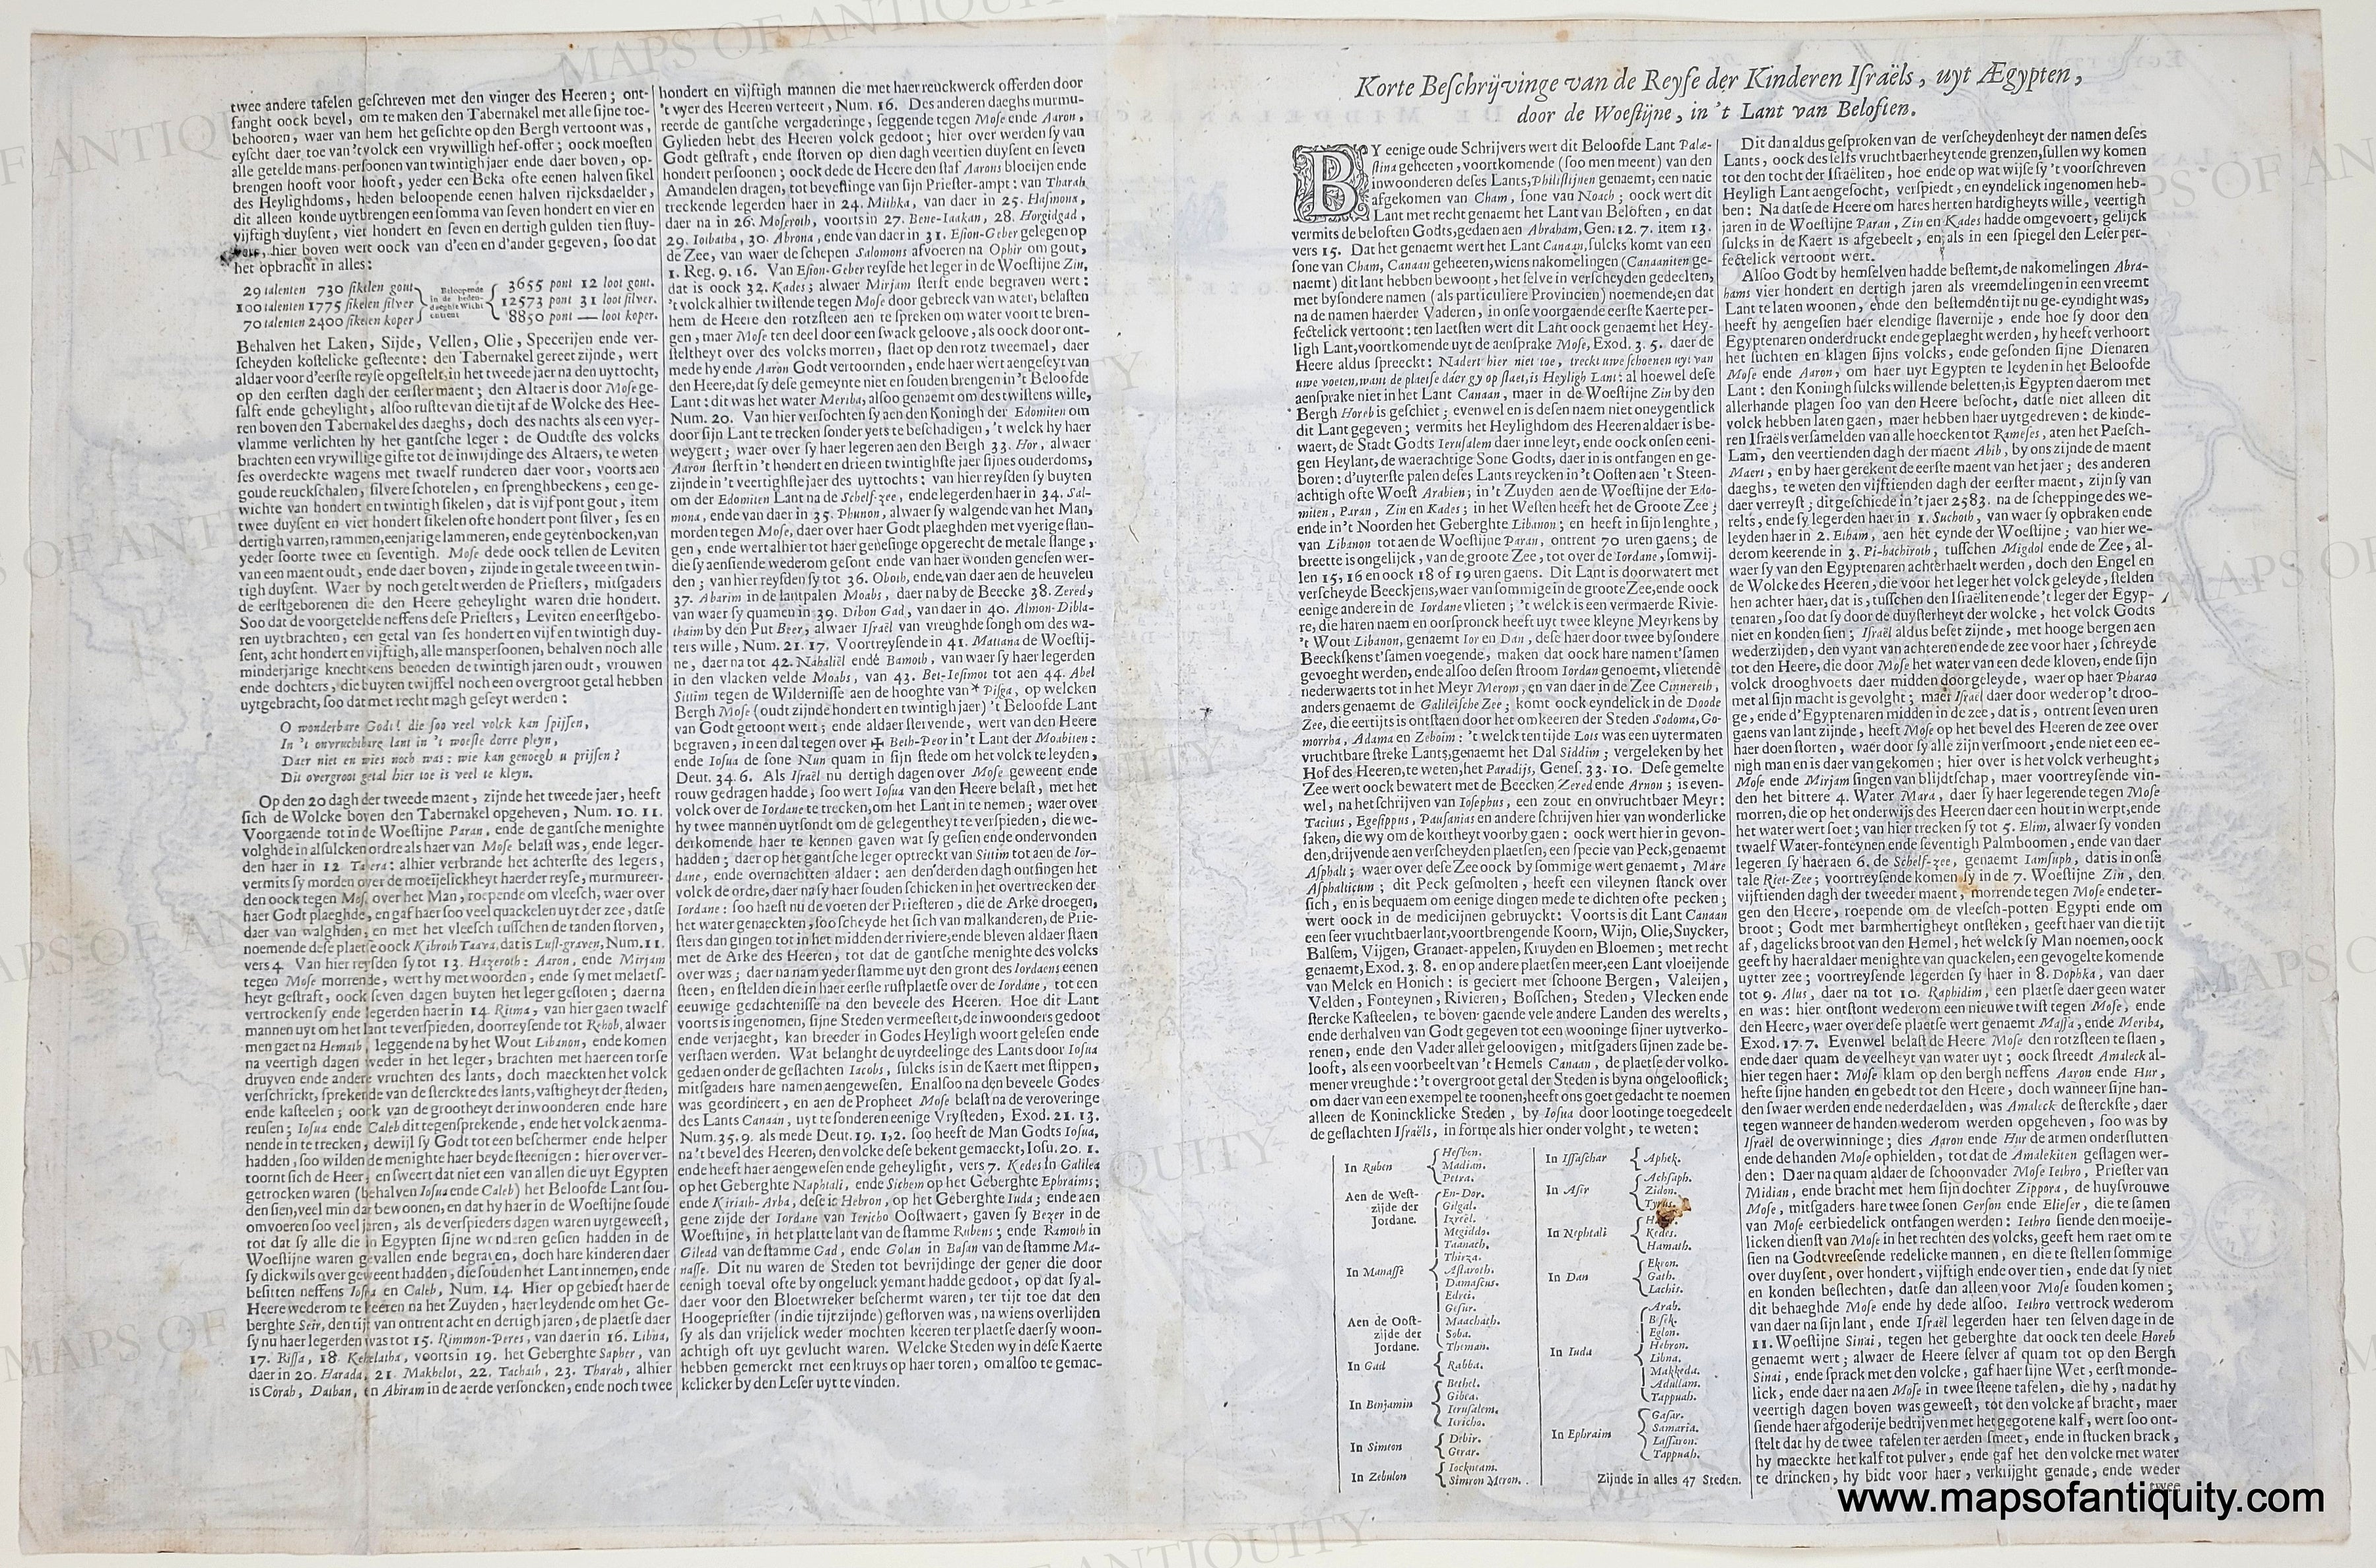 twee andere tafelen geſchreven met den vinger des Heeren; ont-
fanght oock bevel, om te maken den Tabernakel met alle ſijne toe-
behooren, waer van hem het geſichte op den Bergh vertoont was,
eyſcht daer toe van 'tvolck een vrywilligh hef-offer; oock moeſten
alle getelde mans-perſoonen van twintigh jaer ende daer boven, op-
brengen hooft voor hooft, yeder een Beka ofte eenen halven ſikel
des Heylighdoms, heden beloopende eenen halven rijcksdaelder,
dit alleen konde uytbrengen een ſomma van ſeven hondert en vier en
vijftigh duyſent, vier hondert en ſeven en dertigh gulden tien ſtuy-
hier boven wert oock van d'een en d'ander gegeven, ſoo dat
het opbracht in alles:
29 talenten 730 ſikelen gout 3655 pont 12 loot gout.
100 talenten 1775 ſikelen ſilver Beloopende in de heden-daeghſe Wicht 12573 pont 31 loot ſilver.
70 talenten 2400 ſikelen koper 8850 pont — loot koper.
Behalven het Laken, Sijde, Vellen, Olie, Specerijen ende ver-
ſcheyden koſtelicke geſteente: den Tabernakel gereet zijnde, wert
aldaer voor d'eerſte reyſe opgeſtelt, in het tweede jaer na den uyttocht,
op den eerſten dagh der eerſter maent; den Altaer is door Moſe ge-
ſalft ende geheylight, alſoo ruſte van die tijt af de Wolcke des Hee-
ren boven den Tabernakel des daeghs, doch des nachts als een vyer-
vlamme verlichten hy het gantſche leger: de Oudſte des volcks
brachten een vrywillige gifte tot de inwijdinge des Altaers, te weten
ſes overdeckte wagens met twaelf runderen daer voor, voorts aen
goude reuckſchalen, ſilvere ſchotelen, en ſprenghbeckens, een ge-
wichte van hondert en twintigh ſikelen, dat is vijf pont gout, item
twee duyſent en vier hondert ſikelen ofte hondert pont ſilver, ſes en
dertigh varren, rammen, eenjarige lammeren, ende geytenbocken, van
yeder ſoorte twee en ſeventigh. Moſe dede oock tellen de Leviten
van een maent oudt, ende daer boven, zijnde in getale twee en twin-
tigh duyſent. Waer by noch getelt werden de Prieſters, mitſgaders
de eerſtgeborenen die den Heere geheylight waren drie hondert.
Soo dat de voorgetelde neffens deſe Prieſters, Leviten en eerſtgebo-
ren uytbrachten, een getal van ſes hondert en vijf en twintigh duy-
ſent, acht hondert en vijftigh, alle mansperſoonen, behalven noch alle
minderjarige knechtkens beneden de twintigh jaren oudt, vrouwen
ende dochters, die buyten twijffel noch een overgroot getal hebben
uytgebracht, ſoo dat met recht magh geſeyt werden:
O wonderbare Godt! die ſoo veel volck kan ſpijſen,
In 't onvruchtbare lant in 't woeſte dorre pleyn,
Daer niet en wies noch was: wie kan genoegh u prijſen?
Dit overgroot getal hier toe is veel te kleyn.
Op den 20 dagh der tweede maent, zijnde het tweede jaer, heeft
ſich de Wolcke boven den Tabernakel opgeheven, Num. 10. 11.
Voorgaende tot in de Woeſtijne Paran, ende de gantſche menighte
volghde in alſulcken ordre als haer van Moſe belaſt was, ende leger-
den haer in 12 Tabera: alhier verbrande het achterſte des legers,
vermits ſy morden over de moeijelickheyt haerder reyſe, murmureer-
den oock tegen Moſe over het Man, roepende om vleeſch, waer over
haer Godt plaeghde, en gaf haer ſoo veel quackelen uyt der zee, datſe
daer van walghden, en met het vleeſch tuſſchen de tanden ſtorven,
noemende deſe plaetſe oock Kibroth Taava, dat is Luſt-graven, Num. 11.
vers 4. Van hier reyſden ſy tot 13. Hazeroth: Aaron, ende Mirjam
tegen Moſe morrende, wert hy met woorden, ende ſy met melaetſ-
heyt geſtraft, oock ſeven dagen buyten het leger geſloten; daer na
vertrocken ſy ende legerden haer in 14 Ritma, van hier gaen twaelf
mannen uyt om het lant te verſpieden, doorreyſende tot Rehob, alwaer
men gaet na Hemath, leggende na by het Wout Libanon, ende komen
na veertigh dagen weder in het leger, brachten met haer een torſe
druyven ende andere vruchten des lants, doch maeckten het volck
verſchrickt, ſprekende van de ſterckte des lants, vaſtigheyt der ſteden,
ende kaſteelen; oock van de grootheyt der inwoonderen ende hare
reuſen; Ioſua ende Caleb dit tegenſprekende, ende het volck aenma-
nende in te trecken, dewijl ſy Godt tot een beſchermer ende helper
hadden, ſoo wilden de menighte haer beyde ſteenigen: hier over ver-
toornt ſich de Heer, en ſweert dat niet een van allen die uyt Egypten
getrocken waren (behalven Ioſua ende Caleb) het Beloofde Lant ſou-
den ſien, veel min dat bewoonen, en dat hy haer in de Woeſtijne ſoude
omvoeren ſoo veel jaren, als de verſpieders dagen waren uytgeweeſt,
tot dat ſy alle die in Egypten ſijne wonderen geſien hadden in de
Woeſtijne waren gevallen ende begraven, doch hare kinderen daer
ſy dickwils over geweent hadden, die ſouden het Lant innemen, ende
beſitten neffens Ioſua en Caleb, Num. 14. Hier op gebiedt haer de
Heere wederom te keeren na het Zuyden, haer leydende om het Ge-
berghte Seir, den tijt van ontrent acht en dertigh jaren, de plaetſe daer
ſy nu haer legerden was tot 15. Rimmon-Peres, van daer in 16. Libna,
17. Riſſa, 18. Kehelatha, voorts in 19. het Geberghte Sapher, van
daer in 20. Harada, 21. Makhelot, 22. Tachath, 23. Tharah, alhier
is Corah, Dathan, en Abiram in de aerde verſoncken, ende noch twee
hondert en vijftigh mannen die met haer reuckwerck offerden door
't vyer des Heeren verteert, Num. 16. Des anderen daeghs murmu-
reerde de gantſche vergaderinge, ſeggende tegen Moſe ende Aaron,
Gylieden hebt des Heeren volck gedoot; hier over werden ſy van
Godt geſtraft, ende ſtorven op dien dagh veertien duyſent en ſeven
hondert perſoonen; oock dede de Heere den ſtaf Aarons bloeijen ende
Amandelen dragen, tot beveſtinge van ſijn Prieſter-ampt: van Tharah
treckende legerden haer in 24. Mithka, van daer in 25. Haſmona,
daer na in 26. Moſeroth, voorts in 27. Bene-Iaakan, 28. Horgidgad,
29. Iotbatha, 30. Abrona, ende van daer in 31. Eſion-Geber gelegen op
de Zee, van waer de ſchepen Salomons afvoeren na Ophir om gout,
1. Reg. 9. 16. Van Eſion-Geber reyſde het leger in de Woeſtijne Zin,
dat is oock 32. Kades; alwaer Mirjam ſterft ende begraven wert:
't volck alhier twiſtende tegen Moſe door gebreck van water, belaſten
hem de Heere den rotzſteen aen te ſpreken om water voort te bren-
gen, maer Moſe ten deel door een ſwack geloove, als oock door ont-
ſteltheyt over des volcks morren, ſlaet op den rotz tweemael, daer
mede hy ende Aaron Godt vertoornden, ende haer wert aengeſeyt van
den Heere, dat ſy deſe gemeynte niet en ſouden brengen in 't Beloofde
Lant: dit was het water Meriba, alſoo genaemt om des twiſtens wille,
Num. 20. Van hier verſochten ſy aen den Koningh der Edomiten om
door ſijn Lant te trecken ſonder yets te beſchadigen, 't welck hy haer
weygert; waer over ſy haer legeren aen den Bergh 33. Hor, alwaer
Aaron ſterft in 't hondert en drie en twintighſte jaer ſijnes ouderdoms,
zijnde in 't veertighſte jaer des uyttochts: van hier reyſden ſy buyten
om der Edomiten Lant na de Schelf-zee, ende legerden haer in 34. Sal-
mona, ende van daer in 35. Phunon, alwaer ſy walgende van het Man,
morden tegen Moſe, daer over haer Godt plaeghden met vyerige ſlan-
gen, ende wert alhier tot haer geneſinge opgerecht de metale ſlange,
die ſy aenſiende wederom geſont ende van haer wonden geneſen wer-
den; van hier reyſden ſy tot 36. Oboth, ende van daer aen de heuvelen
37. Abarim in de lantpalen Moabs, daer na by de Beecke 38. Zered,
van waer ſy quamen in 39. Dibon Gad, van daer in 40. Almon-Dibla-
thaim by den Put Beer, alwaer Iſraël van vreughde ſongh om des wa-
ters wille, Num. 21. 17. Voortreyſende in 41. Mattana de Woeſtij-
ne, daer na tot 42. Nahaliël ende Bamoth, van waer ſy haer legerden
in den vlacken velde Moabs, van 43. Bet-Ieſimot tot aen 44. Abel
Sittim tegen de Wilderniſſe aen de hooghte van * Piſga, op welcken
Bergh Moſe (oudt zijnde hondert en twintigh jaer) 't Beloofde Lant
van Godt getoont wert; ende aldaer ſtervende, wert van den Heere
begraven, in een dal tegen over ✠ Beth-Peor in 't Lant der Moabiten:
ende Ioſua de ſone van Nun quam in ſijn ſtede om het volck te leyden,
Deut. 34. 6. Als Iſraël nu dertigh dagen over Moſe geweent ende
rouw gedragen hadde, ſoo wert Ioſua van den Heere belaſt, met het
volck over de Iordane te trecken, om het Lant in te nemen; waer over
hy twee mannen uytſondt om de gelegentheyt te verſpieden, die we-
derkomende haer te kennen gaven wat ſy geſien ende ondervonden
hadden; daer op het gantſche leger optreckt van Sittim tot aen de Ior-
dane, ende overnachtten aldaer: aen den derden dagh ontfingen het
volck de ordre, daer na ſy haer ſouden ſchicken in het overtrecken der
Iordane: ſoo haeſt nu de voeten der Prieſteren, die de Arke droegen,
het water genaeckten, ſoo ſcheyde het ſich van malkanderen, de Prie-
ſters dan gingen tot in het midden der riviere, ende bleven aldaer ſtaen
met de Arke des Heeren, tot dat de gantſche menighte des volcks
over was; daer na nam yeder ſtamme uyt den gront des Iordaens eenen
ſteen, en ſtelden die in haer eerſte ruſtplaetſe over de Iordane, tot een
eeuwige gedachteniſſe na den beveele des Heeren. Hoe dit Lant
voorts is ingenomen, ſijne Steden vermeeſtert, de inwoonders gedoot
ende verjaeght, kan breeder in Godes Heyligh woort geleſen ende
verſtaen werden. Wat belanght de uytdeelinge des Lants door Ioſua
gedaen onder de geſlachten Iacobs, ſulcks is in de Kaert met ſtippen,
mitſgaders hare namen aengeweſen. En alſoo na den beveele Godes
was geordineert, en aen de Propheet Moſe belaſt na de veroveringe
des Lants Canaan, uyt te ſonderen eenige Vryſteden, Exod. 21. 13.
Num. 35. 9. als mede Deut. 19. 1,2. ſoo heeft de Man Godts Ioſua,
na 't bevel des Heeren, den volcke deſe bekent gemaeckt, Ioſu. 20. 1.
ende heeft haer aengeweſen ende geheylight, vers 7. Kedes in Galilea
op het Geberghte Naphtali, ende Sichem op het Geberghte Ephraims;
ende Kiriath-Arba, deſe is Hebron, op het Geberghte Iuda; ende aen
gene zijde der Iordane van Iericho Ooſtwaert, gaven ſy Bezer in de
Woeſtijne, in het platte lant van de ſtamme Rubens; ende Ramoth in
Gilead van de ſtamme Gad, ende Golan in Baſan van de ſtamme Ma-
naſſe. Dit nu waren de Steden tot bevrijdinge der gener die door
eenigh toeval ofte by ongeluck yemant hadde gedoot, op dat ſy al-
daer voor den Bloetwreker beſchermt waren, ter tijt toe dat den
Hoogeprieſter (in die tijt zijnde) geſtorven was, na wiens overlijden
ſy als dan vrijelick weder mochten keeren ter plaetſe daer ſy woon-
achtigh oft uyt gevlucht waren. Welcke Steden wy in deſe Kaerte
hebben gemerckt met een kruys op haer toren, om alſoo te gemac-
kelicker by den Leſer uyt te vinden.
Korte Beſchrijvinge van de Reyſe der Kinderen Iſraëls, uyt Ægypten,
door de Woeſtijne, in 't Lant van Beloften.
BY eenige oude Schrijvers wert dit Beloofde Lant Palæ-
ſtina geheeten, voortkomende (ſoo men meent) van den
inwoonderen deſes Lants, Philiſtijnen genaemt, een natie
afgekomen van Cham, ſone van Noach; oock wert dit
Lant met recht genaemt het Lant van Beloften, en dat
vermits de beloften Godts, gedaen aen Abraham, Gen. 12. 7. item 13.
vers 15. Dat het genaemt wert het Lant Canaan, ſulcks komt van een
ſone van Cham, Canaan geheeten, wiens nakomelingen (Canaaniten ge-
naemt) dit lant hebben bewoont, het ſelve in verſcheyden gedeelten,
met byſondere namen (als particuliere Provincien) noemende, en dat
na de namen haerder Vaderen, in onſe voorgaende eerſte Kaerte per-
fectelick vertoont: ten laetſten wert dit Lant oock genaemt het Hey-
ligh Lant, voortkomende uyt de aenſprake Moſe, Exod. 3. 5. daer de
Heere aldus ſpreeckt: Nadert hier niet toe, treckt uwe ſchoenen uyt van
uwe voeten, want de plaetſe daer gy op ſtaet, is Heyligh Lant: al hoewel deſe
aenſprake niet in het Lant Canaan, maer in de Woeſtijne Zin by den
Bergh Horeb is geſchiet; evenwel en is deſen naem niet oneygentlick
dit Lant gegeven; vermits het Heylighdom des Heeren aldaer is be-
waert, de Stadt Godts Ieruſalem daer inne leyt, ende oock onſen eeni-
gen Heylant, de waerachtige Sone Godts, daer in is ontfangen en ge-
boren: d'uyterſte palen deſes Lants reycken in 't Ooſten aen 't Steen-
achtigh ofte Woeſt Arabien; in 't Zuyden aen de Woeſtijne der Edo-
miten, Paran, Zin en Kades; in het Weſten heeft het de Groote Zee;
ende in 't Noorden het Geberghte Libanon; en heeft in ſijn lenghte,
van Libanon tot aen de Woeſtijne Paran, ontrent 70 uren gaens; de
breette is ongelijck, van de groote Zee, tot over de Iordane, ſomwij-
len 15, 16 en oock 18 of 19 uren gaens. Dit Lant is doorwatert met
verſcheyde Beeckjens, waer van ſommige in de groote Zee, ende oock
eenige andere in de Iordane vlieten; 't welck is een vermaerde Rivie-
re, die haren naem en oorſpronck heeft uyt twee kleyne Meyrkens by
't Wout Libanon, genaemt Ior en Dan, deſe haer door twee byſondere
Beeckſkens t'ſamen voegende, maken dat oock hare namen t'ſamen
gevoeght werden, ende alſoo deſen ſtroom Iordan genoemt, vlietende
nederwaerts tot in het Meyr Merom, en van daer in de Zee Cinnereth,
anders genaemt de Galileiſche Zee; komt oock eyndelick in de Doode
Zee, die eertijts is ontſtaen door het omkeeren der Steden Sodoma, Go-
morrha, Adama en Zeboim: 't welck ten tijde Lots was een uytermaten
vruchtbare ſtreke Lants, genaemt het Dal Siddim; vergeleken by het
Hof des Heeren, te weten, het Paradijs, Geneſ. 33. 10. Deſe gemelte
Zee wert oock bewatert met de Beecken Zered ende Arnon; is even-
wel, na het ſchrijven van Ioſephus, een zout en onvruchtbaer Meyr:
Tacitus, Egeſippus, Pauſanias en andere ſchrijven hier van wonderlicke
ſaken, die wy om de kortheyt voorby gaen: oock wert hier in gevon-
den, drijvende aen verſcheyden plaetſen, een ſpecie van Peck, genaemt
Aſphalt; waer over deſe Zee oock by ſommige wert genaemt, Mare
Aſphalticum; dit Peck geſmolten, heeft een vileynen ſtanck over
ſich, en is bequaem om eenige dingen mede te dichten ofte pecken;
wert oock in de medicijnen gebruyckt: Voorts is dit Lant Canaan
een ſeer vruchtbaer lant, voortbrengende Koorn, Wijn, Olie, Suycker,
Balſem, Vijgen, Granaet-appelen, Kruyden en Bloemen; met recht
genaemt, Exod. 3. 8. en op andere plaetſen meer, een Lant vloeijende
van Melck en Honich: is geciert met ſchoone Bergen, Valeijen,
Velden, Fonteynen, Rivieren, Boſſchen, Steden, Vlecken ende
ſtercke Kaſteelen, te boven gaende vele andere Landen des werelts,
ende derhalven van Godt gegeven tot een wooninge ſijner uytverko-
renen, ende den Vader aller geloovigen, mitſgaders ſijnen zade be-
looft, als een voorbeelt van 't Hemels Canaan, de plaetſe der volko-
mener vreughde: 't overgroot getal der Steden is byna ongelooflick;
om daer van een exempel te toonen, heeft ons goet gedacht te noemen
alleen de Konincklicke Steden, by Ioſua door lootinge toegedeelt
de geſlachten Iſraëls, in forme als hier onder volght, te weten:
In Ruben
Heſbon.
Madian.
Petra.
Aen de Weſt-
zijde der
Jordane.
In Manaſſe
Aen de Ooſt-
zijde der
Jordane.
En-Dor.
Gilgal.
Izreël.
Megiddo.
Taanach.
Thirza.
Aſtaroth.
Damaſcus.
Edrei.
Geſur.
Maachath.
Soba.
Theman.
In Gad
Rabba.
In Benjamin
Bethel.
Gibea.
Ieruſalem.
Iericho.
In Simeon
Debir.
Gerar.
In Zebulon
Iockneam.
Simron Meron.
In Iſſaſchar
Aphek.
In Aſir
Achſaph.
Zidon.
Tyrus.
In Nephtali
Kedes.
Hamath.
In Dan
Ekron.
Gath.
Lachis.
In Iuda
Arab.
Beſek.
Eglon.
Hebron.
Libna.
Makkeda.
Adullam.
Tappuah.
In Ephraim
Gaſar.
Samaria.
Laſſaron.
Tappuah.
Zijnde in alles 47 Steden.
Dit dan aldus geſproken van de verſcheydenheyt der namen deſes
Lants, oock des ſelfs vruchtbaerheyt ende grenzen, ſullen wy komen
tot den tocht der Iſraëliten, hoe ende op wat wijſe ſy 't voorſchreven
Heyligh Lant aengeſocht, verſpiedt, en eyndelick ingenomen heb-
ben: Na datſe de Heere om hares herten hardigheyts wille, veertigh
jaren in de Woeſtijne Paran, Zin en Kades hadde omgevoert, gelijck
ſulcks in de Kaert is afgebeelt, en als in een ſpiegel den Leſer per-
fectelick vertoont wert.
Alſoo Godt by hemſelven hadde beſtemt, de nakomelingen Abra-
hams vier hondert en dertigh jaren als vreemdelingen in een vreemt
Lant te laten woonen, ende den beſtemden tijt nu ge-eyndight was,
heeft hy aengeſien haer elendige ſlavernije, ende hoe ſy door den
Egyptenaren onderdruckt ende geplaeght werden, hy heeft verhoort
het ſuchten en klagen ſijns volcks, ende geſonden ſijne Dienaren
Moſe ende Aaron, om haer uyt Egypten te leyden in het Beloofde
Lant: den Koningh ſulcks willende beletten, is Egypten daerom met
allerhande plagen ſoo van den Heere beſocht, datſe niet alleen dit
volck hebben laten gaen, maer hebben haer uytgedreven: de kinde-
ren Iſraëls verſamelden van alle hoecken tot Rameſes, aten het Paeſch-
Lam, den veertienden dagh der maent Abib, by ons zijnde de maent
Maert, en by haer gerekent de eerſte maent van het jaer; des anderen
daeghs, te weten den vijftienden dagh der eerſter maent, zijn ſy van
daer verreyſt; dit geſchiede in 't jaer 2583. na de ſcheppinge des we-
relts, ende ſy legerden haer in 1. Suchoth, van waer ſy opbraken ende
leyden haer in 2. Etham, aen het eynde der Woeſtijne; van hier we-
derom keerende in 3. Pi-hachiroth, tuſſchen Migdol ende de Zee, al-
waer ſy van den Egyptenaren achterhaelt werden, doch den Engel en
de Wolcke des Heeren, die voor het leger het volck geleyde, ſtelden
hen achter haer, dat is, tuſſchen den Iſraëliten ende 't leger der Egyp-
tenaren, ſoo dat ſy door de duyſterheyt der wolcke, het volck Godts
niet en konden ſien; Iſraël aldus beſet zijnde, met hooge bergen aen
wederzijden, den vyant van achteren ende de zee voor haer, ſchreyde
tot den Heere, die door Moſe het water van een dede kloven, ende ſijn
volck drooghvoets daer midden doorgeleyde, waer op haer Pharao
met al ſijn macht is gevolght; maer Iſraël daer door weder op 't droo-
ge, ende d'Egyptenaren midden in de zee, dat is, ontrent ſeven uren
gaens van lant zijnde, heeft Moſe op het bevel des Heeren de zee over
haer doen ſtorten, waer door ſy alle zijn verſmoort, ende niet een ee-
nigh man en is daer van gekomen; hier over is het volck verheught;
Moſe ende Mirjam ſingen van blijdtſchap, maer voortreyſende vin-
den het bittere 4. Water Mara, daer ſy haer legerende tegen Moſe
morren, die op het onderwijs des Heeren daer een hout in werpt, ende
het water wert ſoet; van hier trecken ſy tot 5. Elim, alwaer ſy vonden
twaelf Water-fonteynen ende ſeventigh Palmboomen, ende van daer
legeren ſy haer aen 6. de Schelf-zee, genaemt Iamſuph, dat is in onſe
tale Riet-Zee; voortreyſende komen ſy in de 7. Woeſtijne Zin, den
vijftienden dagh der tweeder maent, morrende tegen Moſe ende ter-
gen den Heere, roepende om de vleeſch-potten Egypti ende om
broot; Godt met barmhertigheyt ontſteken, geeft haer van die tijt
af, dagelicks broot van den Hemel, het welck ſy Man noemen, oock
geeft hy haer aldaer menighte van quackelen, een gevogelte komende
uytter zee; voortreyſende legerden ſy haer in 8. Dophka, van daer
tot 9. Alus, daer na tot 10. Raphidim, een plaetſe daer geen water
en was: hier ontſtont wederom een nieuwe twiſt tegen Moſe, ende
den Heere, waer over deſe plaetſe wert genaemt Maſſa, ende Meriba,
Exod. 17. 7. Evenwel belaſt de Heere Moſe den rotzſteen te ſlaen,
ende daer quam de veelheyt van water uyt; oock ſtreedt Amaleck al-
hier tegen haer: Moſe klam op den bergh neffens Aaron ende Hur,
hefte ſijne handen en gebedt tot den Heere, doch wanneer ſijne han-
den ſwaer werden ende nederdaelden, was Amaleck de ſterckſte, daer
tegen wanneer de handen wederom werden opgeheven, ſoo was by
Iſraël de overwinninge; dies Aaron ende Hur de armen onderſtutten
ende de handen Moſe ophielden, tot dat de Amalekiten geſlagen wer-
den: Daer na quam aldaer de ſchoonvader Moſe Iethro, Prieſter van
Midian, ende bracht met hem ſijn dochter Zippora, de huyſvrouwe
Moſe, mitſgaders hare twee ſonen Gerſon ende Elieſer, die te ſamen
van Moſe eerbiedelick ontfangen werden: Iethro ſiende den moeije-
licken dienſt van Moſe in het rechten des volcks, geeft hem raet om te
ſien na Godtvreeſende redelicke mannen, en die te ſtellen ſommige
over duyſent, over hondert, vijftigh ende over tien, ende dat ſy niet
en konden beſlechten, datſe dan alleen voor Moſe ſouden komen;
dit behaeghde Moſe ende hy dede alſoo. Iethro vertrock wederom
van daer na ſijn lant, ende Iſraël legerden haer ten ſelven dage in de
11. Woeſtijne Sinai, tegen het geberghte dat oock ten deele Horeb
genaemt wert; alwaer de Heere ſelver af quam tot op den Bergh
Sinai, ende ſprack met den volcke, gaf haer ſijne Wet, eerſt monde-
lick, ende daer na aen Moſe in twee ſteene tafelen, die hy, na dat hy
veertigh dagen boven was geweeſt, tot den volcke af bracht, maer
ſiende haer afgoderije bedrijven met het gegotene kalf, wert ſoo ont-
ſtelt dat hy de twee tafelen ter aerden ſmeet, ende in ſtucken brack,
hy maeckte het kalf tot pulver, ende gaf het den volcke met water
te drincken, hy bidt voor haer, verkrijght genade, ende weder
twee
www.mapsofantiquity.com
MAPS OF ANTIQUITY